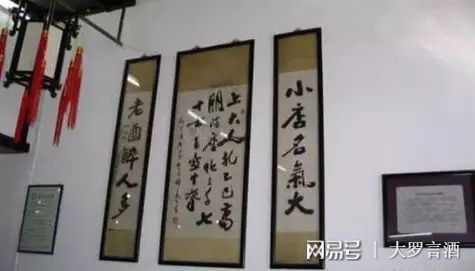 小店名氣大
上大人孔乙己高
朋满座化三千七
十士玉壶生春
老酒醉人多
网易号 | 大罗言酒